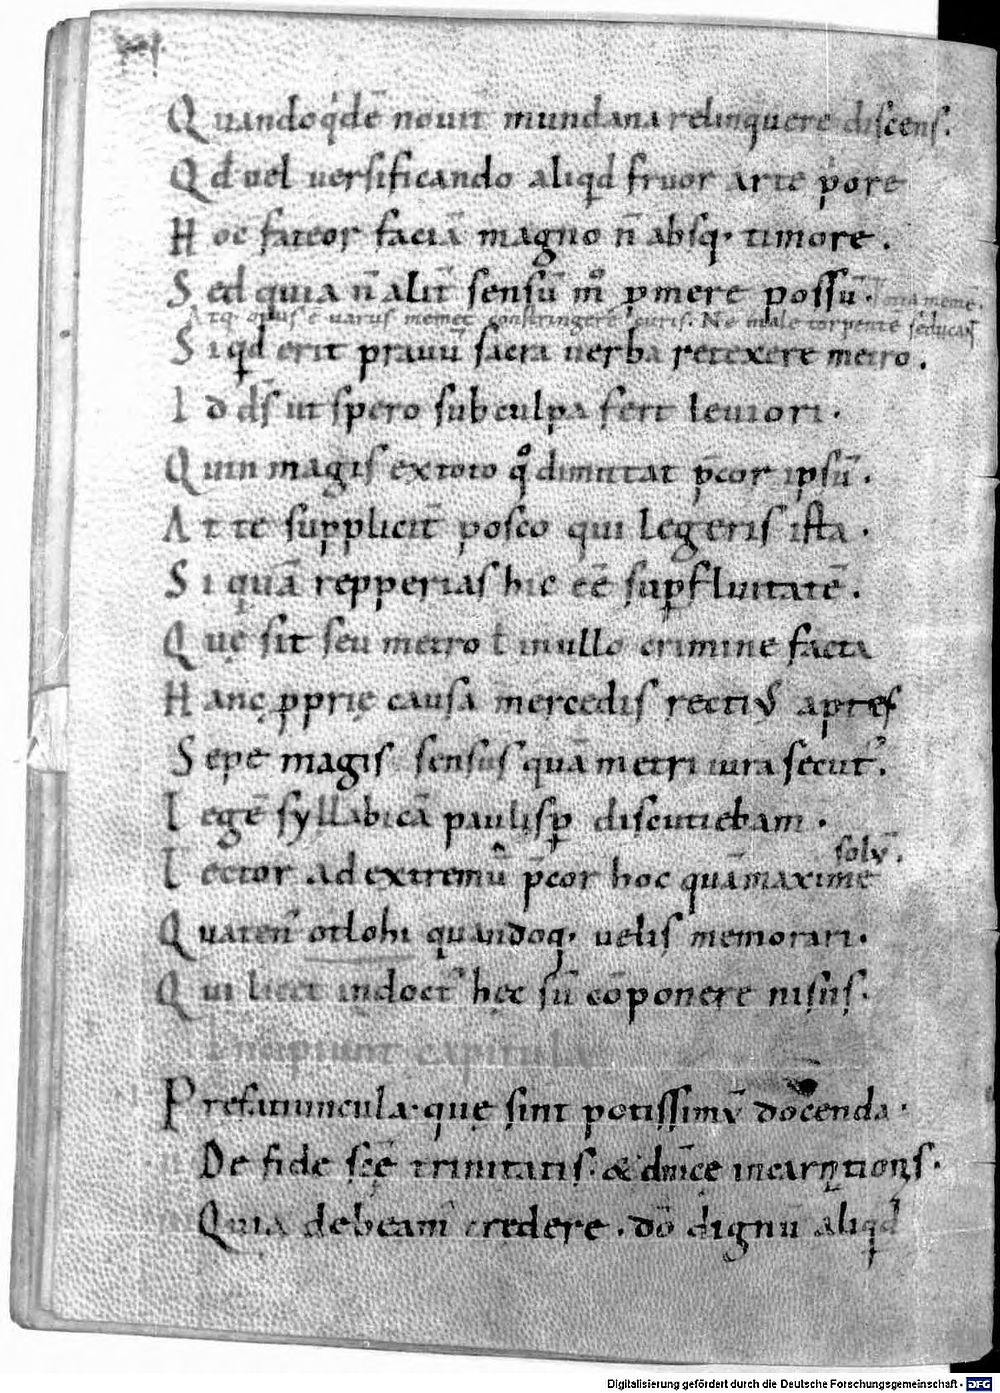 Quandoq̇dē nouit mundana relinquere discens.
Qđ uel uersificando aliqd fruor arte p̓ore
Hoc fateor faciā magno n̄ absq; timore.
Sed quia n̄ alit̄ sensū m̊ p̱mere possū.
Atq; opus ē uariis memet constringere curis. Ne male torpentē
Siqd erit prauū sacra uerba retexere metro.
Id d̄s ut spero sub culpa fert leuiori.
Quin magis ex toto q̊ dimittat p̄cor ipsū.
At te supplicit̄ posco qui legeris ista.
Si quā repperias hic eē sup̱fluitatē.
Quę sit seu metro ł in ullo crimine facta
Hanc p̱prię causa mercedis rectiꝰ aptes
Sepe magis sensus quā metri iura secut᷒.
Legē syllabicā paulisp̱ discutiebam.
solū.
Lector ad extremū p̄cor hoc quāmaxime
Quaten᷒ otlohi quandoq; uelis memorari.
Qui licet indoct᷒ hęc sū cōponere nisus.
Incipiunt capitula
Prefatiuncula. quę sint potissimū docenda.
De fide scē trinitatis. & dn̄ice incarnationis.
Quia debeam᷒ credere. dō dignū aliqd
Digitalisierung gefördert durch die Deutsche Forschungsgemeinschaft - DFG